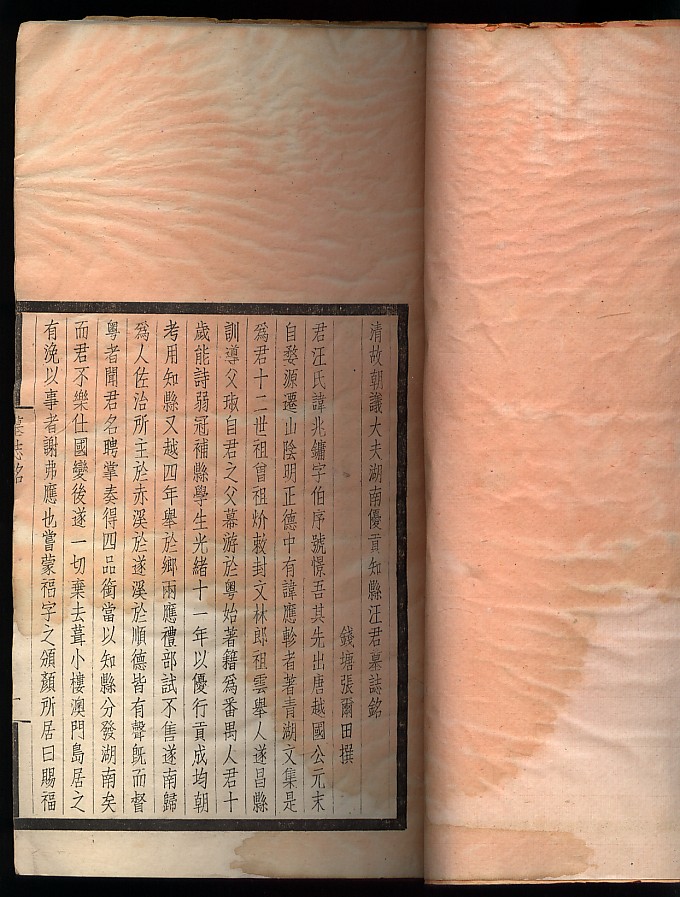 清故朝議大夫湖南優貢知縣汪君墓誌銘
錢塘張爾田撰
君汪氏諱兆鏞字伯序號憬吾其先出唐越國公元末
自婺源遷山陰明正德中有諱應軫者著青湖文集是
爲君十二世祖曾祖炌敕封文林郎祖雲舉人遂昌縣
訓導父瑔自君之父幕游於粵始著籍爲番禺人君十
歲能詩弱冠補縣學生光緒十一年以優行貢成均朝
考用知縣又越四年舉於鄉兩應禮部試不售遂南歸
爲人佐治所主於赤溪於遂溪於順德皆有聲既而督
粵者聞君名聘掌奏得四品銜當以知縣分發湖南矣
而君不樂仕國變後遂一切棄去葺小樓澳門島居之
有浼以事者謝弗應也嘗蒙福字之頒顏所居曰賜福
墓誌銘
一